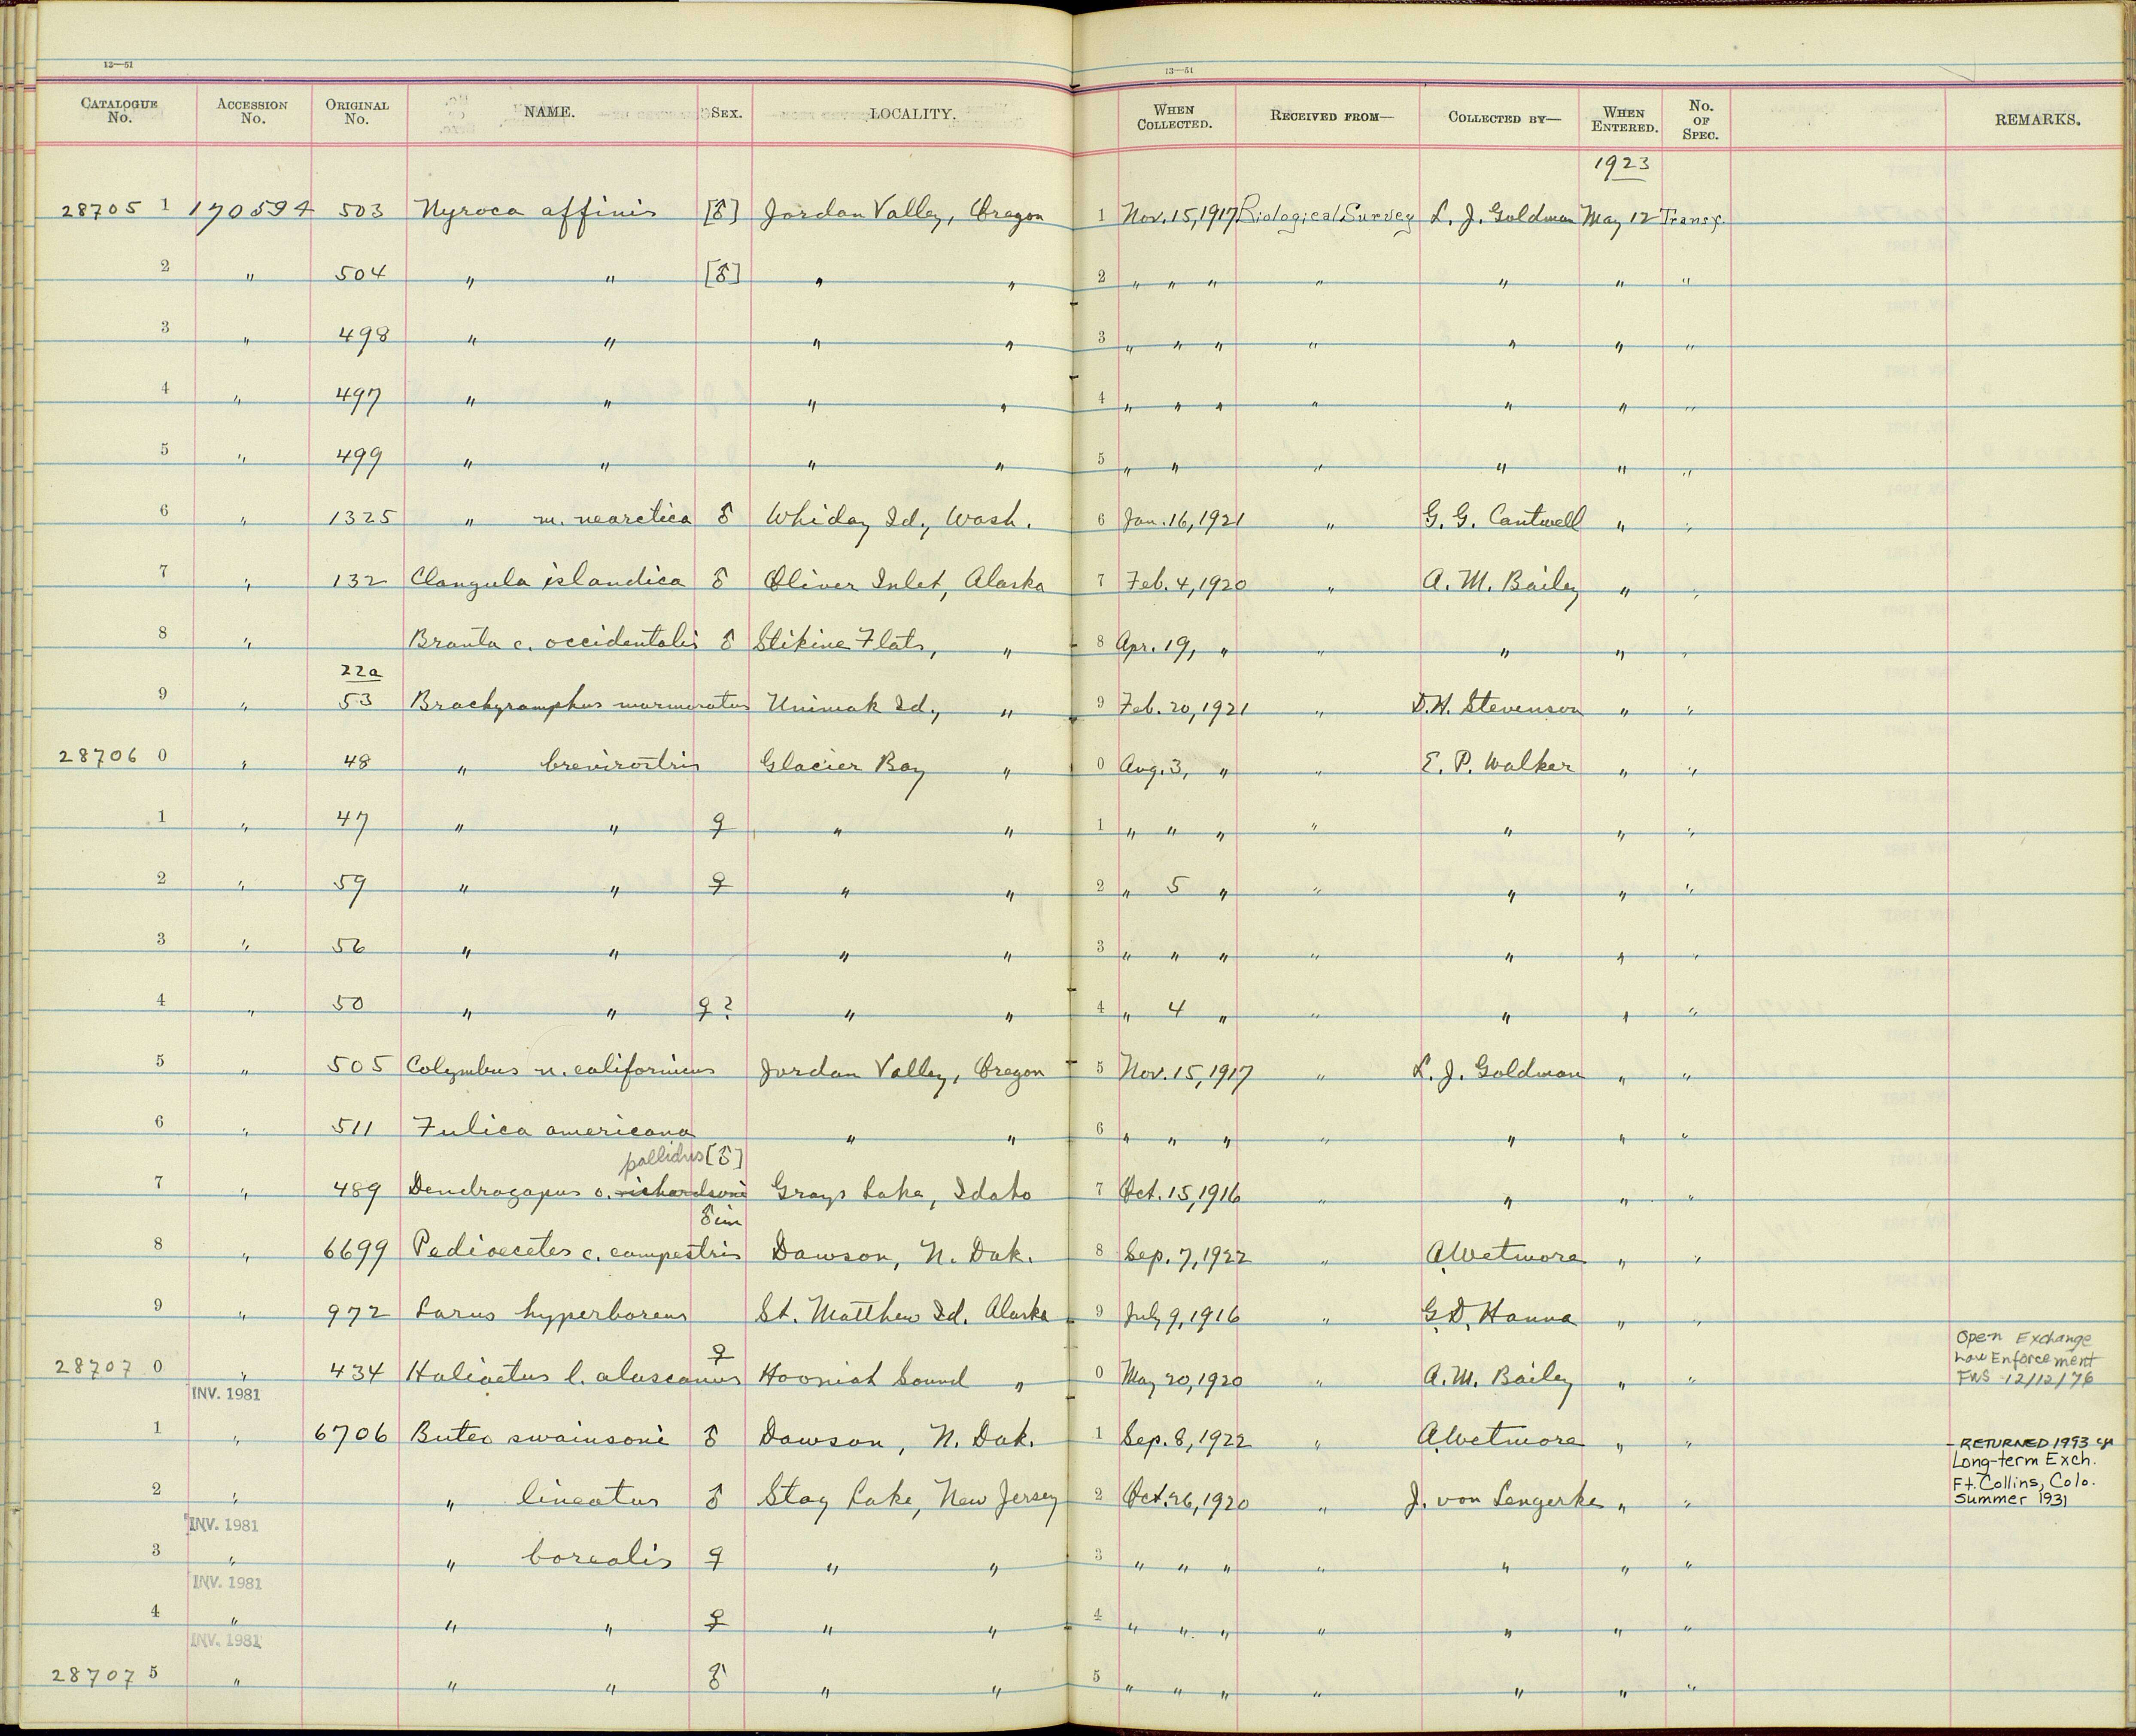 12—51
13—51
CATALOGUE No. ACCESSION No. ORIGINAL No. NAME. SEX. LOCALITY. WHEN COLLECTED. RECEIVED FROM— COLLECTED BY— WHEN ENTERED. No. OF SPEC. REMARKS.
1923
28705 1 170594 503 Nyroca affinis [♂] Jordan Valley, Oregon 1 Nov. 15, 1917 Biological Survey L. J. Goldman May 12 Transf.
2 " 504 " " [♂] " " 2 " " " " " " "
3 " 498 " " " " 3 " " " " " " "
4 " 497 " " " " 4 " " " " " " "
5 " 499 " " " " 5 " " " " " "
6 " 1325 " m. nearctica ♂ Whiday Id., Wash. 6 Jan. 16, 1921 " G. G. Cantwell " "
7 " 132 Clangula islandica ♂ Oliver Inlet, Alaska 7 Feb. 4, 1920 " A. M. Bailey " "
8 " Branta c. occidentalis ♂ Stikine Flats, " 8 Apr. 19, " " " " "
22a
9 " 53 Brachyramphus marmoratus Unimak Id., " 9 Feb. 20, 1921 " D. H. Stevenson " "
28706 0 " 48 " brevirostris Glacier Bay " 0 Aug. 3, " " E. P. Walker " "
1 " 47 " " ♀ " " 1 " " " " " " "
2 " 59 " " ♀ " " 2 " 5 " " " " "
3 " 56 " " " " 3 " " " " " " "
4 " 50 " " ♀? " " 4 " 4 " " " " "
5 " 505 Colymbus n. californicus Jordan Valley, Oregon 5 Nov. 15, 1917 " L. J. Goldman " "
6 " 511 Fulica americana " " 6 " " " " " " "
pallidus [♂]
7 " 489 Dendragapus o. richardsoni Grays Lake, Idaho 7 Oct. 15, 1916 " " " "
♂ im
8 " 6699 Pedioecetes c. campestris Dawson, N. Dak. 8 Sep. 7, 1922 " A Wetmore " "
9 " 972 Larus hyperboreus St. Matthew Id. Alaska 9 July 9, 1916 " G. D. Hanna " "
♀
28707 0 " 434 Haliaetus l. alascanus Hooniah Sound " 0 May 20, 1920 " A. M. Bailey " "
Open Exchange
Law Enforcement
FWS 12/12/76
INV. 1981
1 " 6706 Buteo swainsoni ♂ Dawson, N. Dak. 1 Sep. 8, 1922 " A Wetmore " "
RETURNED 1993
Long-term Exch.
Ft. Collins, Colo.
Summer 1931
2 " " lineatus ♂ Stag Lake, New Jersey 2 Oct. 26, 1920 " J. von Lengerke " "
INV. 1981
3 " " borealis ♀ " " 3 " " " " " " "
INV. 1981
4 " " " ♀ " " 4 " " " " " " "
INV. 1981
28707 5 " " " ♂ " " 5 " " " " " " "